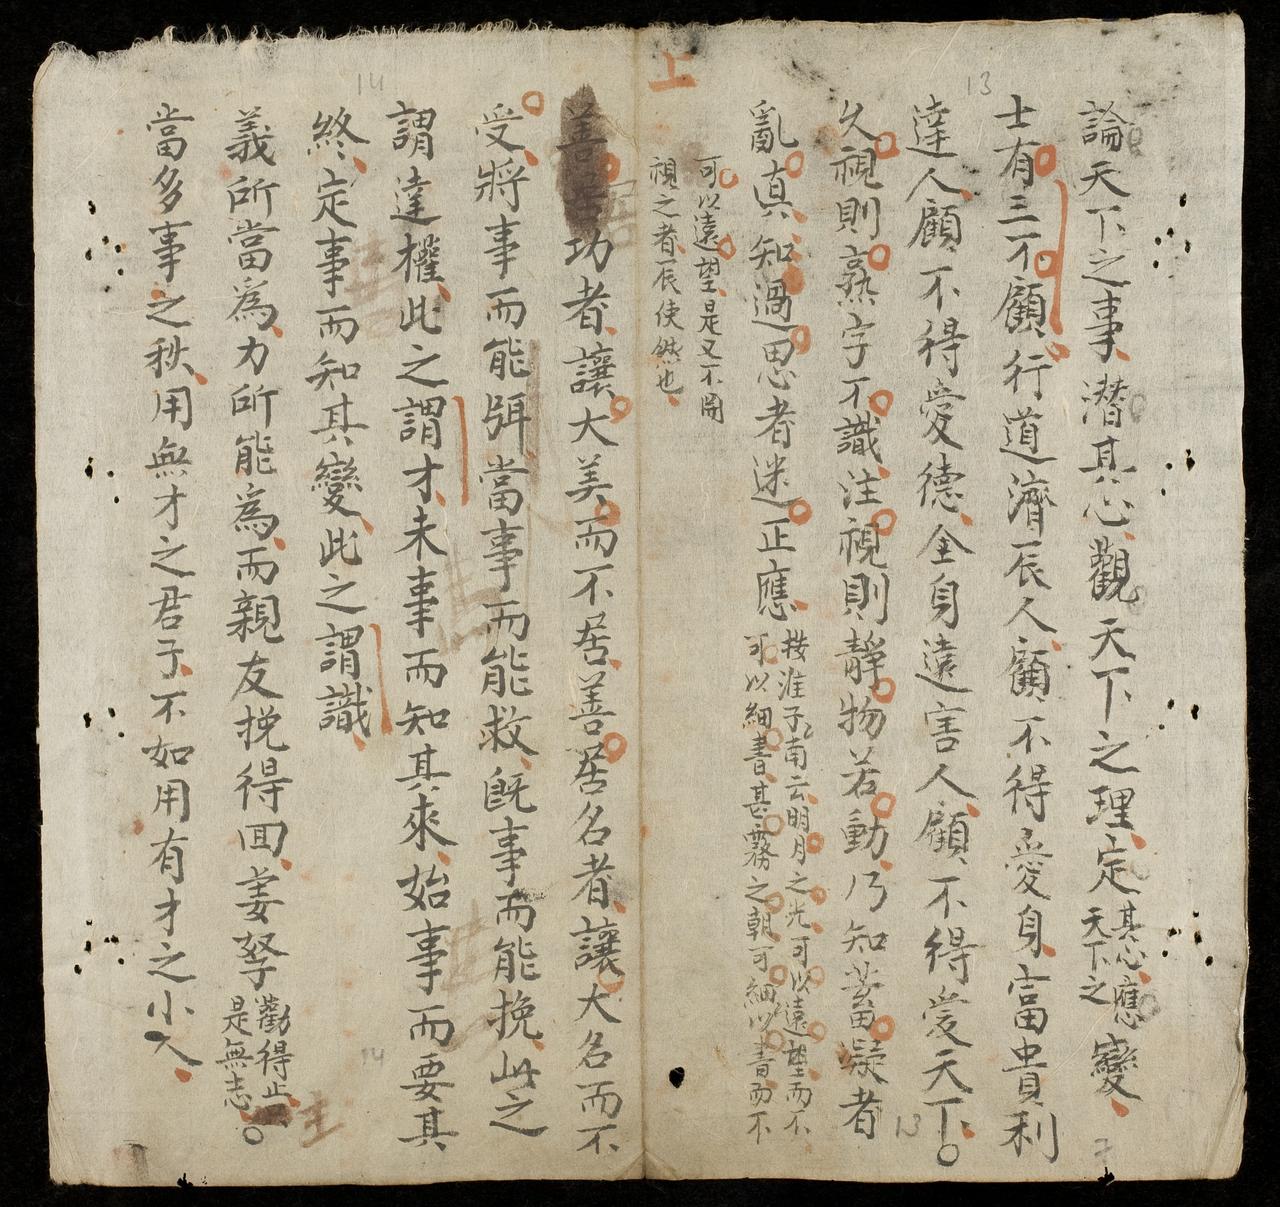 13
論天下之事潛其心觀天下之理定其心應天下之變
士有三不顧行道濟辰人顧不得愛身富貴利
達人顧不得愛德全身遠害人顧不得愛天下○
久視則熟字不識注視則靜物若動乃知蓄疑者
亂真知過思者迷正應按淮子南云明月之光可以遠望而不可以細書甚霧之朝可細以書而不
可以遠望是又不関
視之者辰使然也
上
14
善居功者讓大美而不居善居名者讓大名而不
受將事而能弭當事而能救既事而能挽此之
謂達權此之謂才未事而知其來始事而要其
終定事而知其變此之謂識
義所當為力所能為而親友挽得回妻孥勸得止是無志○
當多事之秋用無才之君子不如用有才之小人
13
14